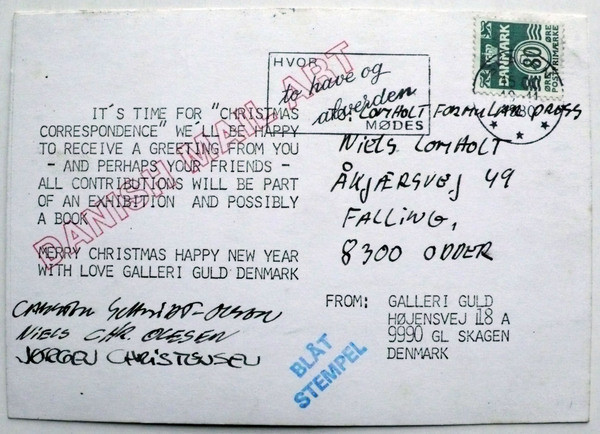 HVOR
to have og
alverden
MØDES
DANMARK
80
POSTFRIMÆRKE
DANISH MAIL ART
IT´S TIME FOR "CHRISTMAS
CORRESPONDENCE" WE´LL BE HAPPY
TO RECEIVE A GREETING FROM YOU
- AND PERHAPS YOUR FRIENDS -
ALL CONTRIBUTIONS WILL BE PART
OF AN EXHIBITION AND POSSIBLY
A BOOK
MERRY CHRISTMAS HAPPY NEW YEAR
WITH LOVE GALLERI GULD DENMARK
CARSTEN SCHMIDT-OLSEN
NIELS CHR. OLESEN
JØRGEN CHRISTENSEN
LOMHOLT FORMULAR PRESS
NIELS LOMHOLT
ÅKJÆRSVEJ 49
FALLING,
8300 ODDER
FROM: GALLERI GULD
HØJENSVEJ 18 A
9990 GL SKAGEN
DENMARK
BLÅT
STEMPEL